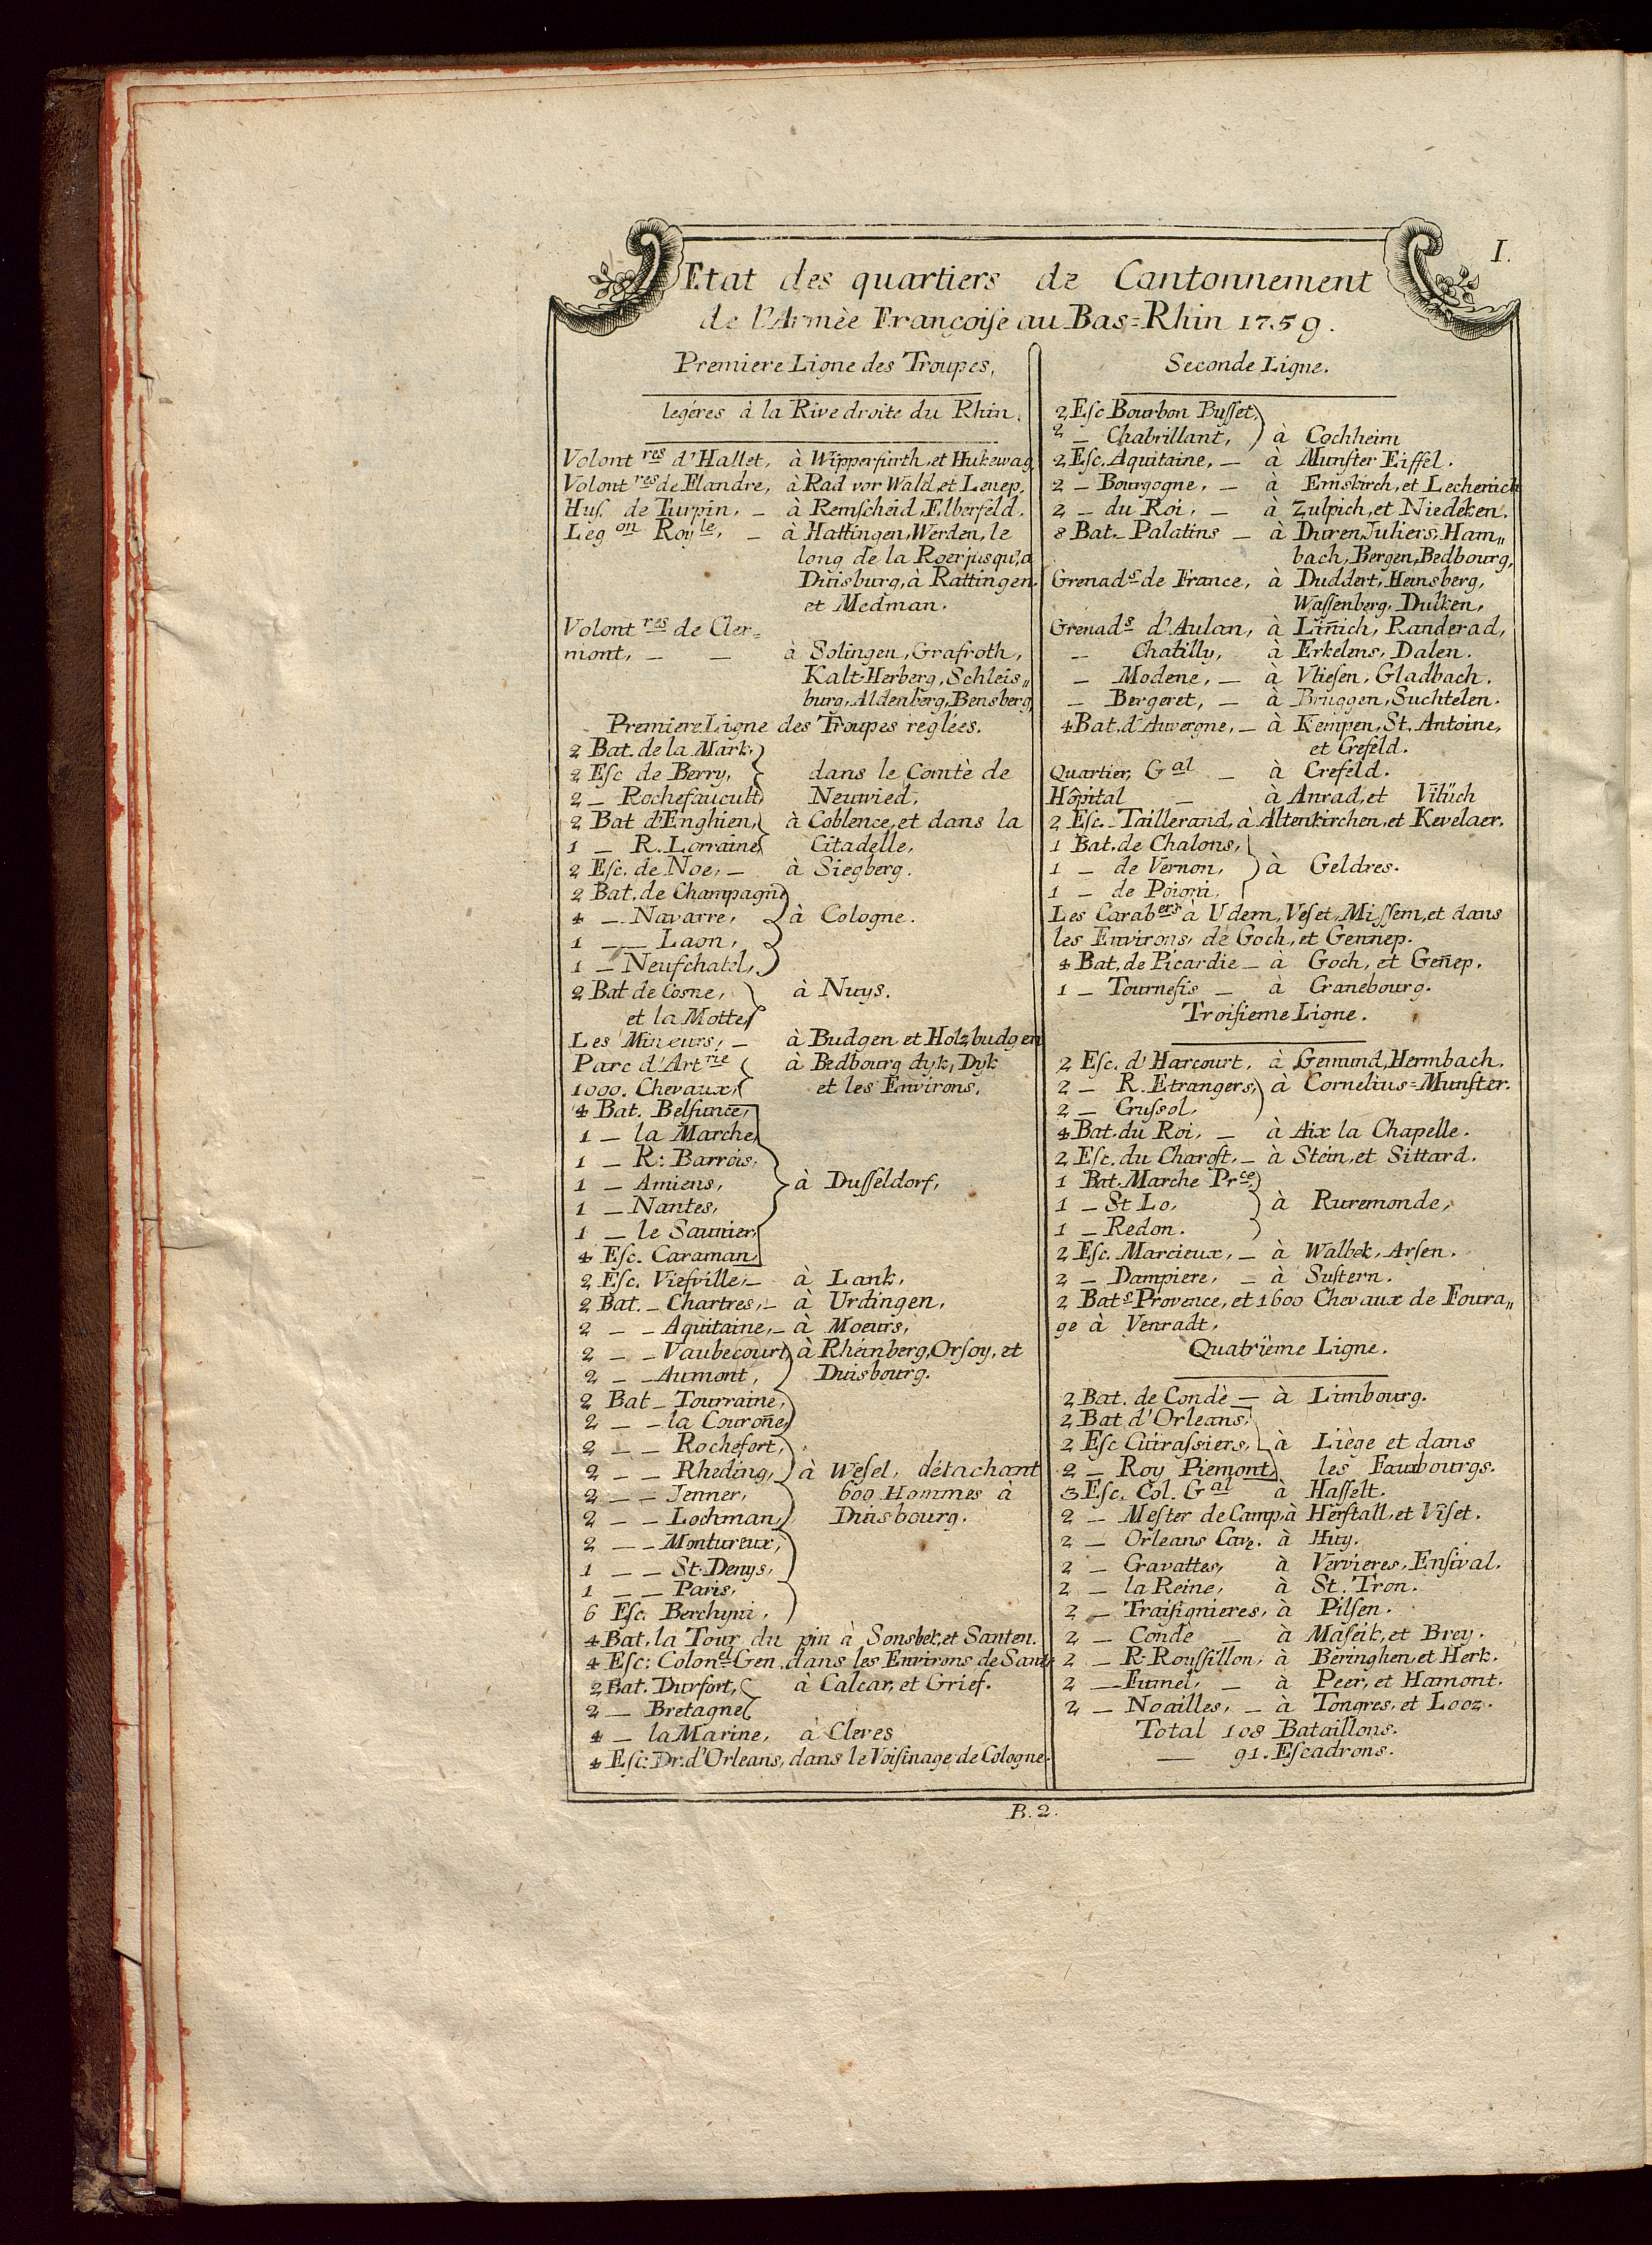 I.
Etat des quartiers de Cantonnement
de l'Armèe Françoiſe au Bas=Rhin 1759.
Premiere Ligne des Troupes,
legéres à la Rive droite du Rhin.
Volont res d'Hallet, à Wipperfurth, et Hukewag
Volont res de Flandre, à Rad vor Wald, et Lenep,
Huſ. de Turpin, – à Remſcheid, Elberfeld.
Leg on Roy le, – à Hattingen, Werden, le
long de la Roer jusqu'a
Duisburg, à Rattingen
et Medman.
Volont res de Cler=
mont, – – à Solingen, Grafroth,
Kalt-Herberg, Schleis„
burg, Aldenberg, Bensberg,
Premiere Ligne des Troupes reglées.
2 Bat. de la Mark,
2 Eſc de Berry, dans le Comtè de
2 – Rochefaucult, Neuwied,
2 Bat d'Enghien, à Coblence, et dans la
1 – R. Lorraine, Citadelle,
2 Eſc. de Noe, – à Siegberg.
2 Bat. de Champagne
4 – Navarre, à Cologne.
1 – Laon,
1 – Neufchatel,
2 Bat de Cosne, à Nuys.
et la Motte,
Les Mineurs, – à Budgen et Holzbudgen
Parc d'Art rie à Bedbourg dyk, Dyk
1000. Chevaux, et les Environs,
4 Bat. Belſunce,
1 – la Marche,
1 – R: Barrois,
1 – Amiens, à Duſſeldorf,
1 – Nantes,
1 – le Saunier,
4 Eſc. Caraman,
2 Eſc. Vieſville, – à Lank,
2 Bat. – Chartres, – à Urdingen,
2 – – Aquitaine, – à Moeurs,
2 – – Vaubecourt, à Rheinberg, Orſoy, et
2 – – Aumont, Duisbourg.
2 Bat – Tourraine,
2 – – la Couroñe,
2 – – Rochefort,
2 – – Rheding, à Weſel, détachant
2 – – Jenner, 600 Hommes à
2 – – Lochman, Duisbourg.
2 – – Montureux,
1 – – St. Denys,
1 – – Paris,
6 Eſc. Berchyni,
4 Bat, la Tour du pin à Sonsbek, et Santen.
4 Eſc: Colon el Gen. dans les Environs de Sant
2 Bat. Durfort, à Calcar, et Grief.
2 – Bretagne
4 – la Marine, à Cleves
4 Eſc: Dr. d'Orleans, dans le Voiſinage de Cologne.
Seconde Ligne.
2 Eſc Bourbon Buſſet,
2 – Chabrillant, à Cochheim
2 Eſc. Aquitaine, – à Munſter Eiffel.
2 – Bourgogne, – à Emskirch, et Lechenich
2 – du Roi, – à Zulpich, et Niedeken.
8 Bat. Palatins – à Duren, Juliers, Ham„
bach, Bergen, Bedbourg,
Grenad s de France, à Duddert, Heinsberg,
Waſſenberg, Dulken,
Grenad s d'Aulan, à Liñich, Randerad,
– Chatilly, à Erkelens, Dalen.
– Modene, – à Vlieſen, Gladbach.
– Bergeret, – à Bruggen, Suchtelen.
4 Bat. d'Auvergne, – à Kempen, St. Antoine,
et Crefeld.
Quartier, G al – à Crefeld.
Hôpital – à Anrad, et Vilüch
2 Eſc. Taillerand, à Altenkirchen, et Kevelaer.
1 Bat. de Chalons,
1 – de Vernon, à Geldres.
1 – de Poigni,
Les Carab ers à Udem, Veſet, Miſſem, et dans
les Environs, de Goch, et Gennep.
4 Bat. de Picardie – à Goch, et Geñep.
1 – Tourneſis – à Cranebourg.
Troiſieme Ligne.
2 Eſc. d'Harcourt, à Gemund, Hermbach.
2 – R. Etrangers, à Cornelius=Munſter.
2 – Cruſsol,
4 Bat. du Roi, – à Aix la Chapelle.
2 Eſc. du Charoſt, – à Stein, et Sittard.
1 Bat. Marche Pr ce,
1 – St Lo, à Ruremonde,
1 – Redon.
2 Eſc. Marcieux, – à Walbek, Arſen.
2 – Dampiere, – à Suſtern.
2 Bat s Provence, et 1600 Chevaux de Foura„
ge à Venradt,
Quatrìeme Ligne.
2 Bat. de Condè – à Limbourg.
2 Bat d'Orleans,
2 Eſc Cüiraſsiers, à Liège et dans
2 – Roy Piemont, les Fauxbourgs.
3 Eſc. Col. G al à Haſſelt.
2 – Meſter de Camp, à Herſtall, et Viſet.
2 – Orleans Cav. à Huy.
2 – Cravattes, à Vervieres, Enſival.
2 – la Reine, à St. Tron.
2 – Traiſignieres, à Pilſen.
2 – Condè – à Maſeik, et Brey.
2 – R. Rouſſillon, à Beringhen, et Herk.
2 – Fumel, – à Peer, et Hamont.
2 – Noailles, – à Tongres, et Looz.
Total 108 Bataillons.
— 91. Eſcadrons.
B. 2.